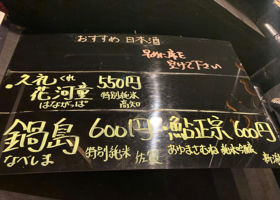 おすすめ 日本酒
早めに席を
空けて下さい
・久礼 くれ 550円
花河童 特別純米
はながっぱ 高知
鍋島 600円
なべしま 特別純米 佐賀
・鮎正宗 600円
あゆまさむね 純米吟醸
新潟